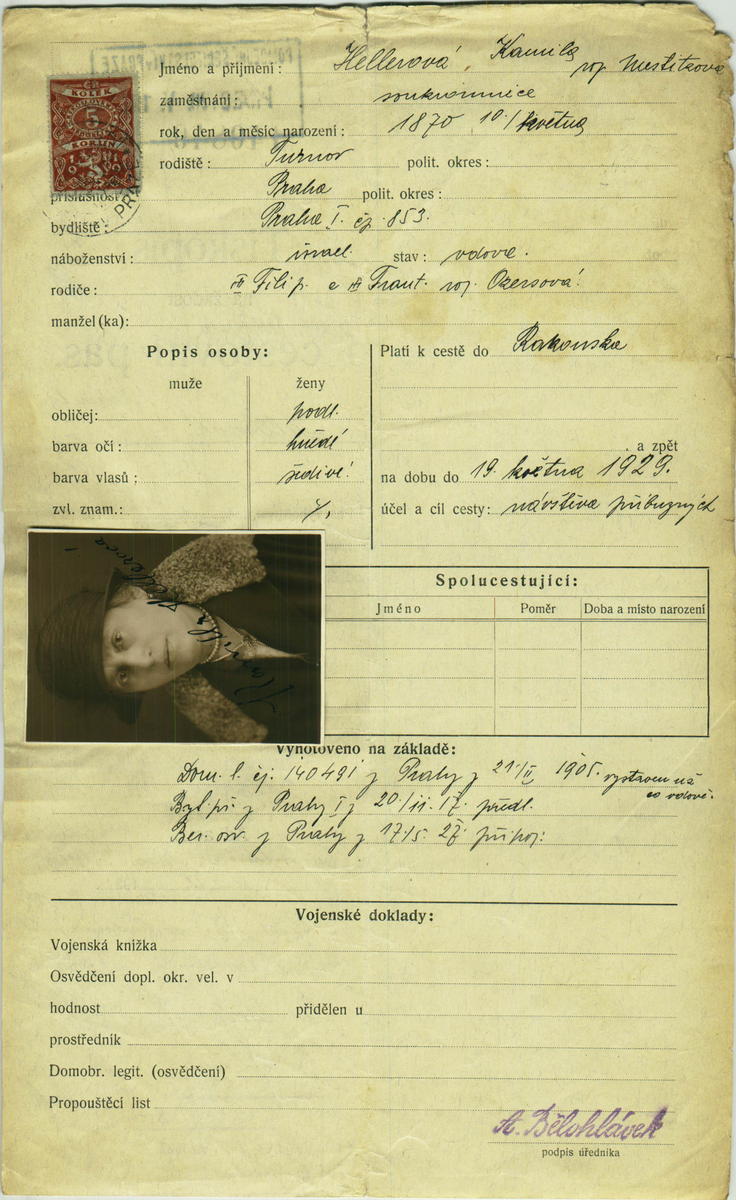 Jméno a příjmení: Hellerová, Kamila roz. Mestitzova
KOLEK
5
KORUN
zaměstnání: soukromnice
rok, den a měsíc narození: 1870 10./ května
rodiště: Turnov polit. okres:
PRA
příslušnost Praha polit. okres:
bydliště: Praha I. čp. 853.
náboženství: israel. stav: vdova.
rodiče: Filip. a Frant. roz.
manžel (ka):
Popis osoby:
muže ženy
obličej: podl.
barva očí: hnědé
barva vlasů: šedivé
zvl. znam.:
Platí k cestě do Rakouska
a zpět
na dobu do 19. května 1929.
účel a cíl cesty: návštěva příbuzných
Kamila Hellerová
Spolucestující:
Jméno Poměr Doba a místo narození
Vyhotoveno na základě:
Dom. l. čj. 140491 z Prahy z 1905. vystaven
co vdově.
z Prahy I z 20./11. 17. předl.
Ber. osv. z Prahy z 17./5. 27. připoj.
Vojenské doklady:
Vojenská knížka
Osvědčení dopl. okr. vel. v
hodnost přidělen u
prostředník
Domobr. legit. (osvědčení)
Propouštěcí list
A. Bělohlávek
podpis úředníka